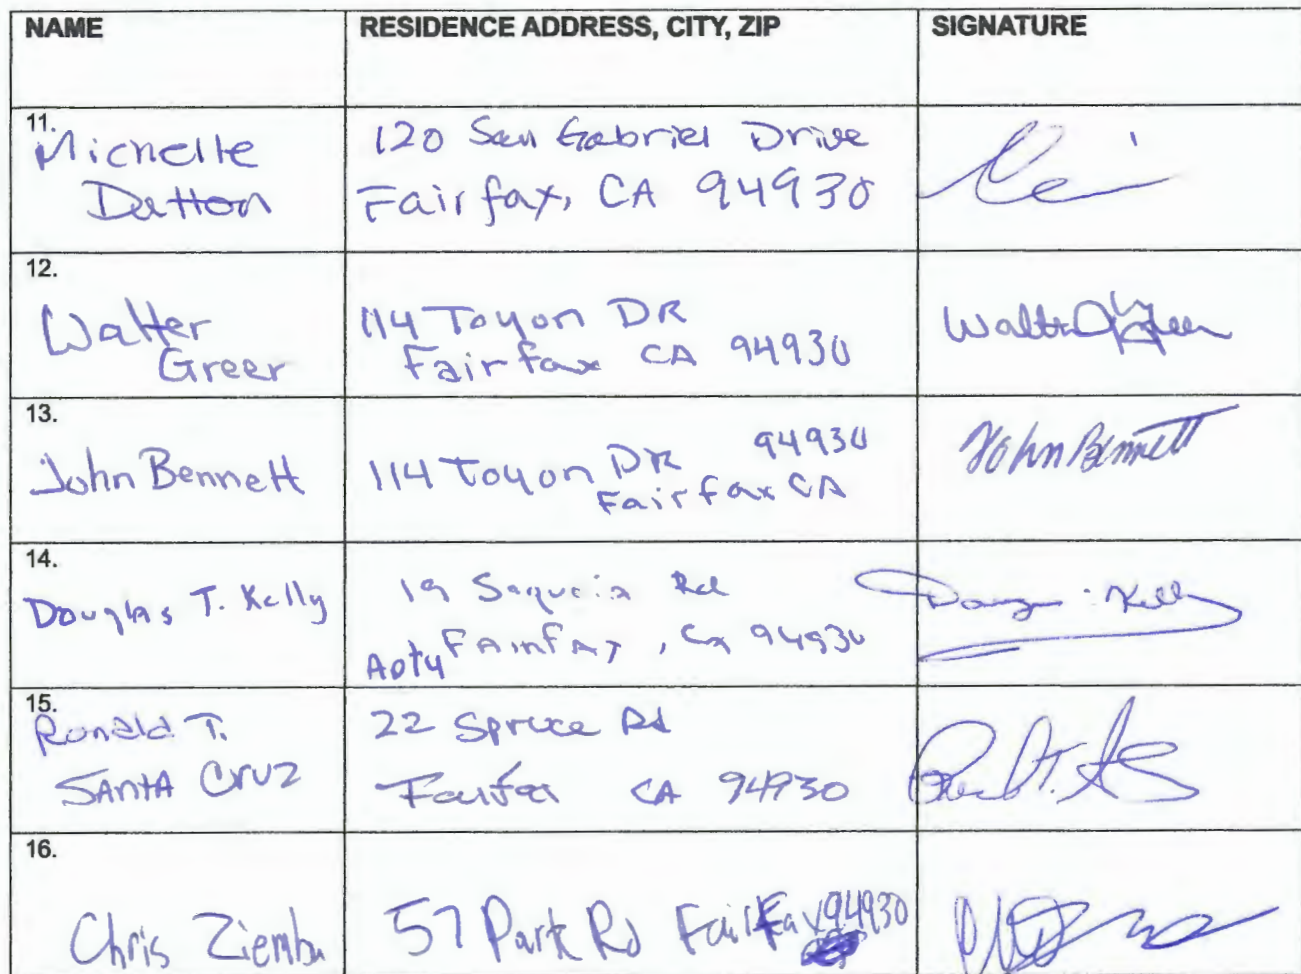 NAME RESIDENCE ADDRESS, CITY, ZIP SIGNATURE
11.
Michelle
Dutton
120 San Gabriel Drive
Fairfax, CA 94930
12.
Walter
Greer
114 Toyon DR
Fairfax CA 94930
Walter Greer
13.
John Bennett
114 Toyon DR 94930
Fairfax CA
John Bennett
14.
Douglas T. Kelly
19 Sequoia Rd
Apt4 FAIRFAX, CA 94930
Kelly
15.
Ronald T.
SANTA Cruz
22 Spruce Rd
Fairfax CA 94930
16.
Chris Ziemba
57 Park Rd Fairfax 94930